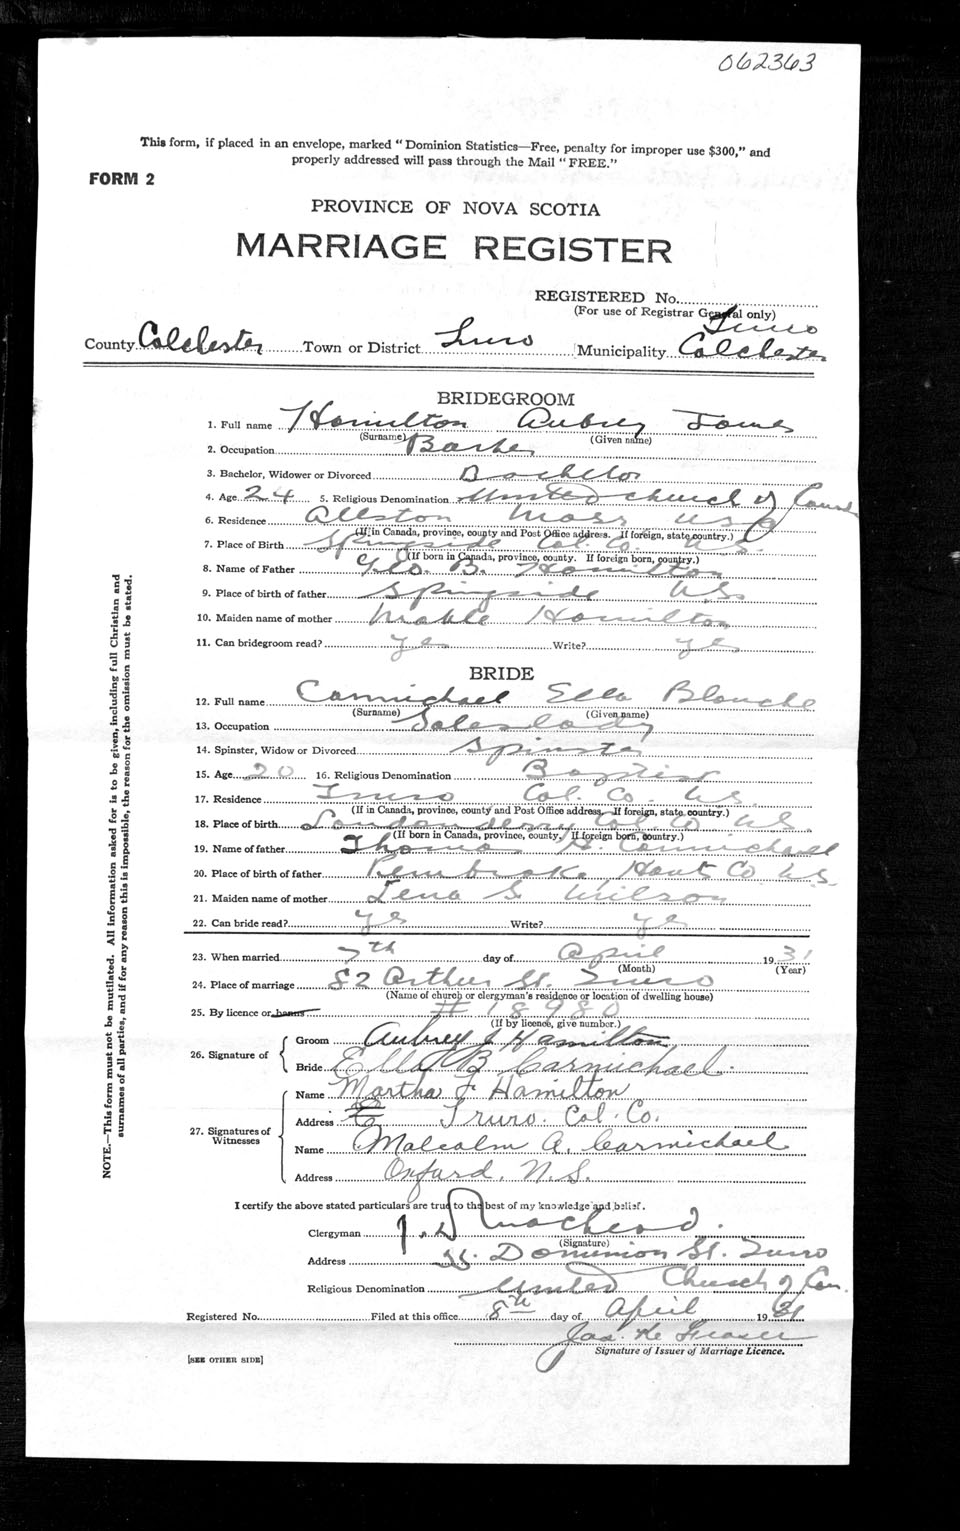 062363
This form, if placed in an envelope, marked "Dominion Statistics—Free, penalty for improper use $300," and
properly addressed will pass through the Mail "FREE."
FORM 2
PROVINCE OF NOVA SCOTIA
MARRIAGE REGISTER
REGISTERED No.
(For use of Registrar General only)
Truro
County Colchester Town or District Truro Municipality Colchester
BRIDEGROOM
1. Full name Hamilton Aubrey James
(Surname) (Given name)
2. Occupation Barber
3. Bachelor, Widower or Divorced Bachelor
4. Age 24 5. Religious Denomination United Church of Canada
6. Residence Allston Mass USA
(If in Canada, province, county and Post Office address. If foreign, state country.)
7. Place of Birth Springside Col. Co. N.S.
(If born in Canada, province, county. If foreign born, country.)
8. Name of Father Geo. B. Hamilton
9. Place of birth of father Springside N.S.
10. Maiden name of mother Mable Hamilton
11. Can bridegroom read? yes Write? yes
BRIDE
12. Full name Carmichael Ella Blanche
(Surname) (Given name)
13. Occupation Saleslady
14. Spinster, Widow or Divorced Spinster
15. Age 20 16. Religious Denomination Baptist
17. Residence Truro Col. Co. N.S.
(If in Canada, province, county and Post Office address. If foreign, state country.)
18. Place of birth Londonderry Col Co N.S.
(If born in Canada, province, county. If foreign born, country.)
19. Name of father Thomas Carmichael
20. Place of birth of father Pembroke Hants Co N.S.
21. Maiden name of mother Lena S. Wilson
22. Can bride read? yes Write? yes
23. When married 7th day of April 1931
(Month) (Year)
24. Place of marriage 82 Arthur St. Truro
(Name of church or clergyman's residence or location of dwelling house)
25. By licence or banns # 18980
(If by licence, give number.)
26. Signature of
Groom Aubrey J Hamilton
Bride Ella B Carmichael
27. Signatures of Witnesses
Name Martha J Hamilton
Address Truro. Col. Co.
Name Malcolm A. Carmichael
Address Oxford, N.S.
I certify the above stated particulars are true to the best of my knowledge and belief.
Clergyman
(Signature)
Address Dominion St. Truro
Religious Denomination United Church of Can.
Registered No. Filed at this office 8th day of April 1931
Jas. Fraser
Signature of Issuer of Marriage Licence.
[SEE OTHER SIDE]
NOTE.—This form must not be mutilated. All information asked for is to be given, including full Christian and
surnames of all parties, and if for any reason this is impossible, the reason for the omission must be stated.